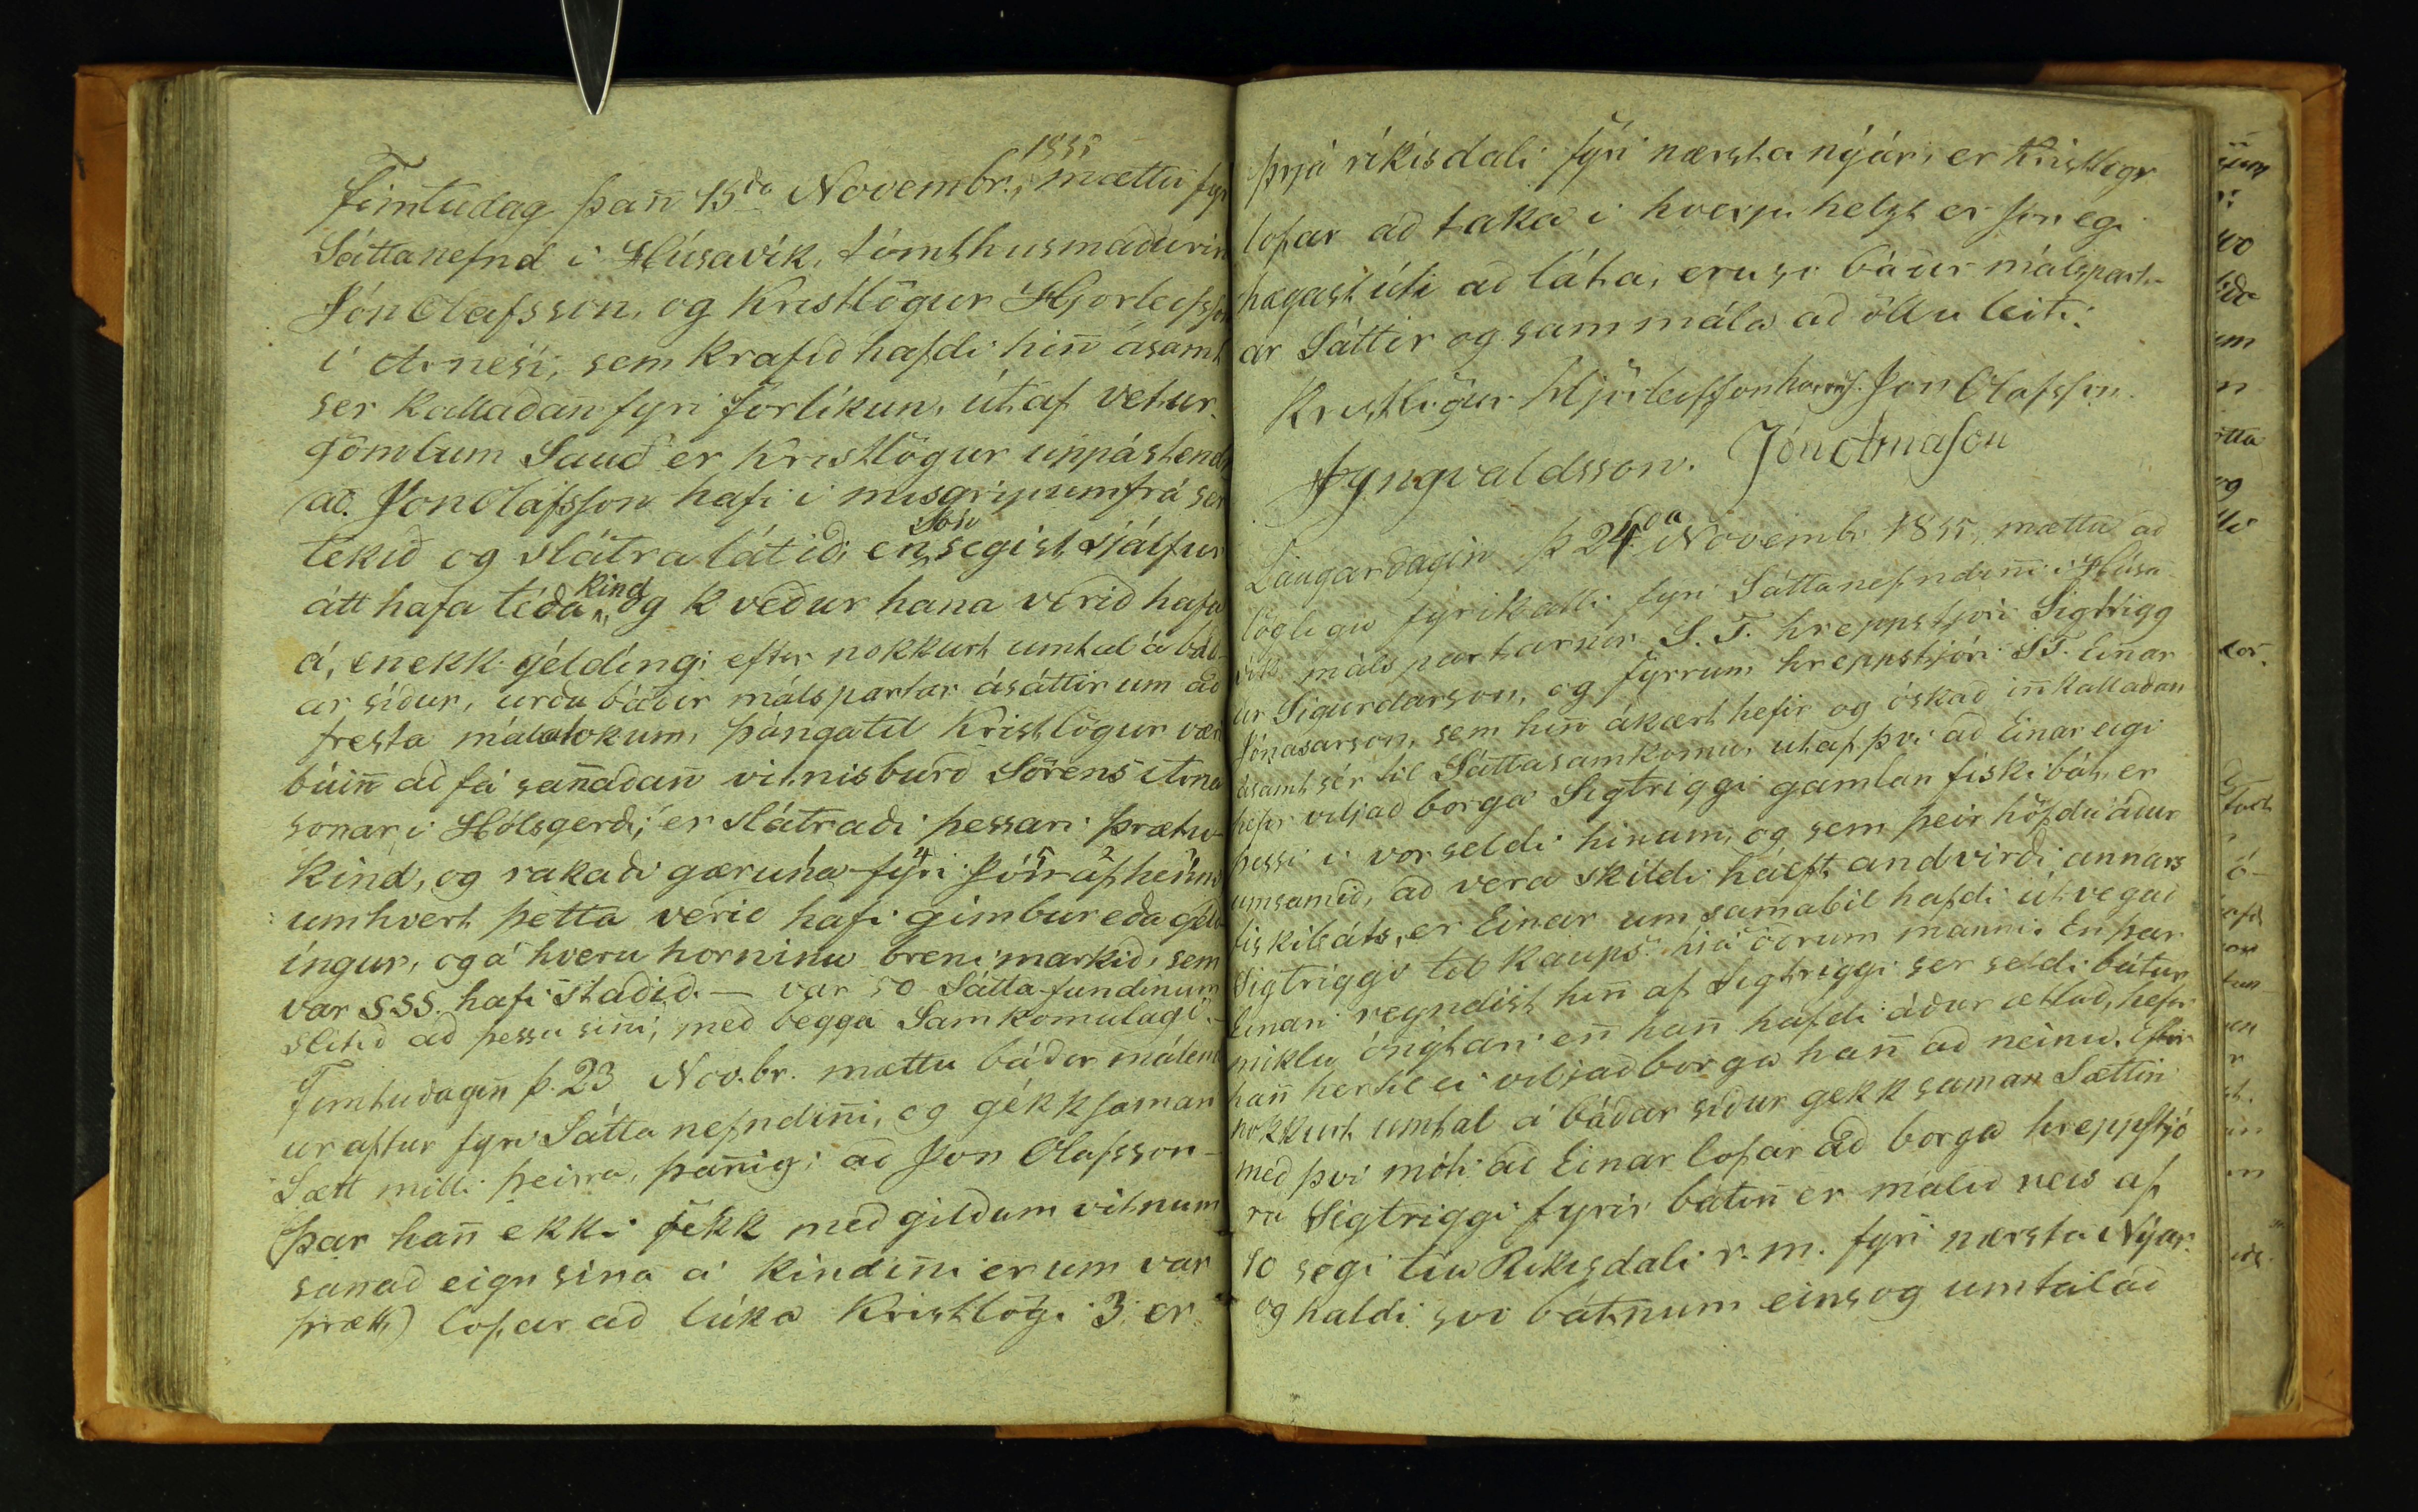 1855
Fimtudag þan̄ 15da Novembr., mættu fyr
Sáttanefnd i Húsavík, tómthusmaðurin
Jón Olafsson, og Kristlögur Hjorleifsson
i Arnesi, sem krafið hafdi hin̄ ásamt
ser kallaðan̄ fyri forlikun, útaf vetur-
gömlum Sauð er Kristlögur uppástend
að Jon Olafsson hafi i misgripum frá ser
tekið og slátra látið, en Jón segist sjálfur
átt hafa téda kind, og kveður hana verið hafa
á, en ekk. gélding; eftir nokkurt umtal á báð-
ar síður, urðu báðir málspartar ásáttir um að
fresta málalokum, þángatil Kristlögur væri
búin̄ að fá san̄aðan̄ vitnisburð Sörens Arna
sonar i Hólsgerði, er slátraði þessari þrætu-
kind, og rakaði gæruna fyri Jón af hen̄ni
umhvert þetta verið hafi gimbur eða géld-
íngur, og á hveru horninu breni markið, sem
var SSS. hafi staðið. — var so Sátta fundinum
slitið að þessu sin̄i, með beggja Samkomulagi. —
Fimtudagin̄ þ. 23 Nov.br. mættu báðir málend
ur aftur fyri Sátta nefndin̄i, og gékk saman
Sætt milli þeirra, þan̄ig; að Jon Olafsson —
(þar han̄ ekki fékk með gildum vitnum
sanað eign sina á kindin̄i er um var
þrætt) lofar að lúka Kristlögi 3 er
þrjá ríkisdali fyri næsta nýár, er Kristlögr
lofar að taka i hverju helzt er Jon egi
hægast úti að láta, eru so báðir málspart-
ar Sáttir og sammála að öllu leiti.
Kristlögur Hjörleifsson Jon Olafsson
J Yngvaldsson. Jón Arnason
Laugardagin þ 24da Novemb. 1855, mættu að
löglegu fyrikalli fyri Sáttanefndin̄i i Húsa
vík málspartarnir S. T. hreppstjóri Sigtrigg
ur Sigurdarson, og fyrrum hreppstjóri S T. Einar
Jónasarson, sem hin̄ ákært hefir og óskað in̄kallaðan
ásamt sér til Sáttasamkomu, utaf því að Einar eigi
hefir viljað borga Sigtriggi gamlan fiskibát, er
þessi i vor seldi hinum, og sem þeir höfdu áður
umsamið, að vera skildi hálft andvirði annars
fiskibáts, er Einar um samabil hafdi útvegað
Sigtriggi til kaups hiá öðrum manni. En þar
Einari reyndist hin̄ af Sigtriggi ser seldi bátur
miklu ónýtari en̄ han̄ hafdi áður ætlað, hefir
han̄ hertil ei viljað borga han̄ að neinu. Eftir
nokkurt umtal á báðar síður gekk saman Sættin
með því móti að Einar lofar að borga hreppstjó
ra Sigtriggi fyrir bátin̄ er málið reis af
10 segi tíu Rikisdali r. m. fyri næsta Nýar
og haldi svo bátnum eins og umtalað